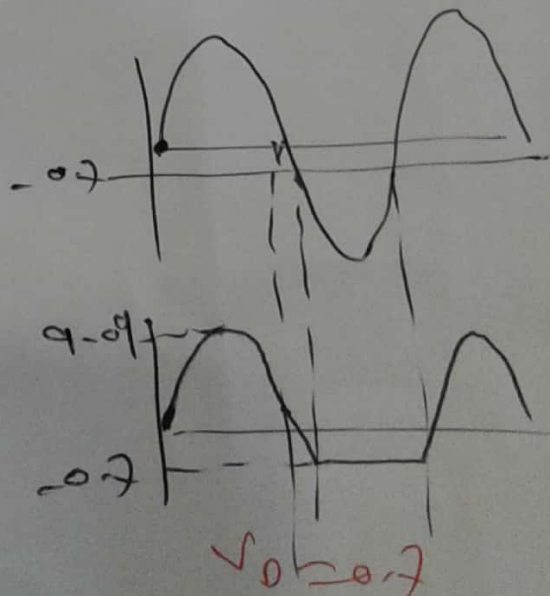 -0.7
9.09
-0.7
V_D = 0.7